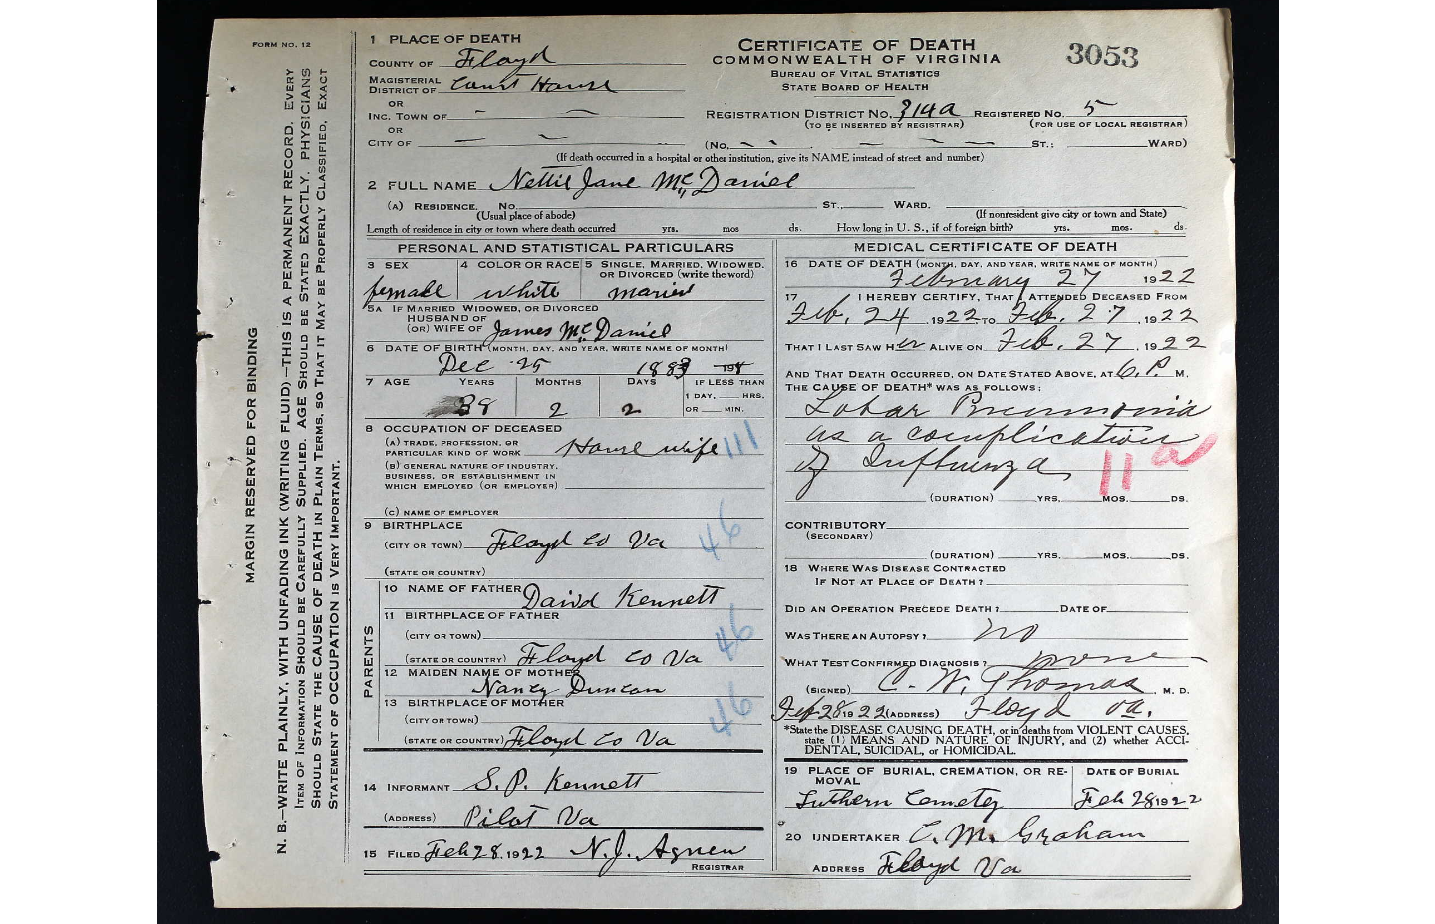 FORM NO. 12
MARGIN RESERVED FOR BINDING
N. B.—WRITE PLAINLY, WITH UNFADING INK (WRITING FLUID)—THIS IS A PERMANENT RECORD. EVERY
ITEM OF INFORMATION SHOULD BE CAREFULLY SUPPLIED. AGE SHOULD BE STATED EXACTLY. PHYSICIANS
SHOULD STATE THE CAUSE OF DEATH IN PLAIN TERMS, SO THAT IT MAY BE PROPERLY CLASSIFIED. EXACT
STATEMENT OF OCCUPATION IS VERY IMPORTANT.
CERTIFICATE OF DEATH
COMMONWEALTH OF VIRGINIA
BUREAU OF VITAL STATISTICS
STATE BOARD OF HEALTH
3053
1 PLACE OF DEATH
COUNTY OF Floyd
MAGISTERIAL DISTRICT OF Court House
OR
INC. TOWN OF — —
OR
CITY OF — —
REGISTRATION DISTRICT NO. 314a REGISTERED NO. 5
(TO BE INSERTED BY REGISTRAR) (FOR USE OF LOCAL REGISTRAR)
(NO. ST.; WARD)
(If death occurred in a hospital or other institution, give its NAME instead of street and number)
2 FULL NAME Nettie Jane McDaniel
(A) RESIDENCE. NO. ST., WARD.
(Usual place of abode) (If nonresident give city or town and State)
Length of residence in city or town where death occurred yrs. mos ds. How long in U. S., if of foreign birth? yrs. mos. ds.
PERSONAL AND STATISTICAL PARTICULARS
3 SEX 4 COLOR OR RACE 5 SINGLE, MARRIED, WIDOWED, OR DIVORCED (write the word)
female white maried
5A IF MARRIED WIDOWED, OR DIVORCED
HUSBAND OF
(OR) WIFE OF James McDaniel
6 DATE OF BIRTH (MONTH, DAY, AND YEAR, WRITE NAME OF MONTH)
Dec 25 1883
7 AGE YEARS MONTHS DAYS IF LESS THAN
1 DAY, HRS.
OR MIN.
38 2 2
8 OCCUPATION OF DECEASED
(A) TRADE, PROFESSION, OR
PARTICULAR KIND OF WORK House wife 111
(B) GENERAL NATURE OF INDUSTRY,
BUSINESS, OR ESTABLISHMENT IN
WHICH EMPLOYED (OR EMPLOYER)
(C) NAME OF EMPLOYER
9 BIRTHPLACE
(CITY OR TOWN) Floyd Co Va 46
(STATE OR COUNTRY)
PARENTS
10 NAME OF FATHER David Kennett
11 BIRTHPLACE OF FATHER
(CITY OR TOWN)
(STATE OR COUNTRY) Floyd Co Va 46
12 MAIDEN NAME OF MOTHER
Nancy Duncan
13 BIRTHPLACE OF MOTHER
(CITY OR TOWN)
(STATE OR COUNTRY) Floyd Co Va 46
14 INFORMANT S. P. Kennett
(ADDRESS) Pilot Va
15 FILED Feb 28, 1922 N. J. Agnew
REGISTRAR
MEDICAL CERTIFICATE OF DEATH
16 DATE OF DEATH (MONTH, DAY, AND YEAR, WRITE NAME OF MONTH)
February 27 1922
17 I HEREBY CERTIFY, THAT I ATTENDED DECEASED FROM
Feb. 24, 1922 TO Feb. 27, 1922
THAT I LAST SAW HER ALIVE ON Feb. 27, 1922
AND THAT DEATH OCCURRED, ON DATE STATED ABOVE, AT 6. P. M.
THE CAUSE OF DEATH* WAS AS FOLLOWS:
Lobar Pneumonia
as a complication
of Influenza 11a
(DURATION) YRS. MOS. DS.
CONTRIBUTORY
(SECONDARY)
(DURATION) YRS. MOS. DS.
18 WHERE WAS DISEASE CONTRACTED
IF NOT AT PLACE OF DEATH?
DID AN OPERATION PRECEDE DEATH? DATE OF
WAS THERE AN AUTOPSY? no
WHAT TEST CONFIRMED DIAGNOSIS? none
(SIGNED) C. W. Thomas M. D.
Feb 28 1922 (ADDRESS) Floyd Va.
*State the DISEASE CAUSING DEATH, or in deaths from VIOLENT CAUSES,
state (1) MEANS AND NATURE OF INJURY, and (2) whether ACCI-
DENTAL, SUICIDAL, or HOMICIDAL.
19 PLACE OF BURIAL, CREMATION, OR RE-
MOVAL DATE OF BURIAL
Luthern Cemetey Feb 28 1922
20 UNDERTAKER C. M. Graham
ADDRESS Floyd Va